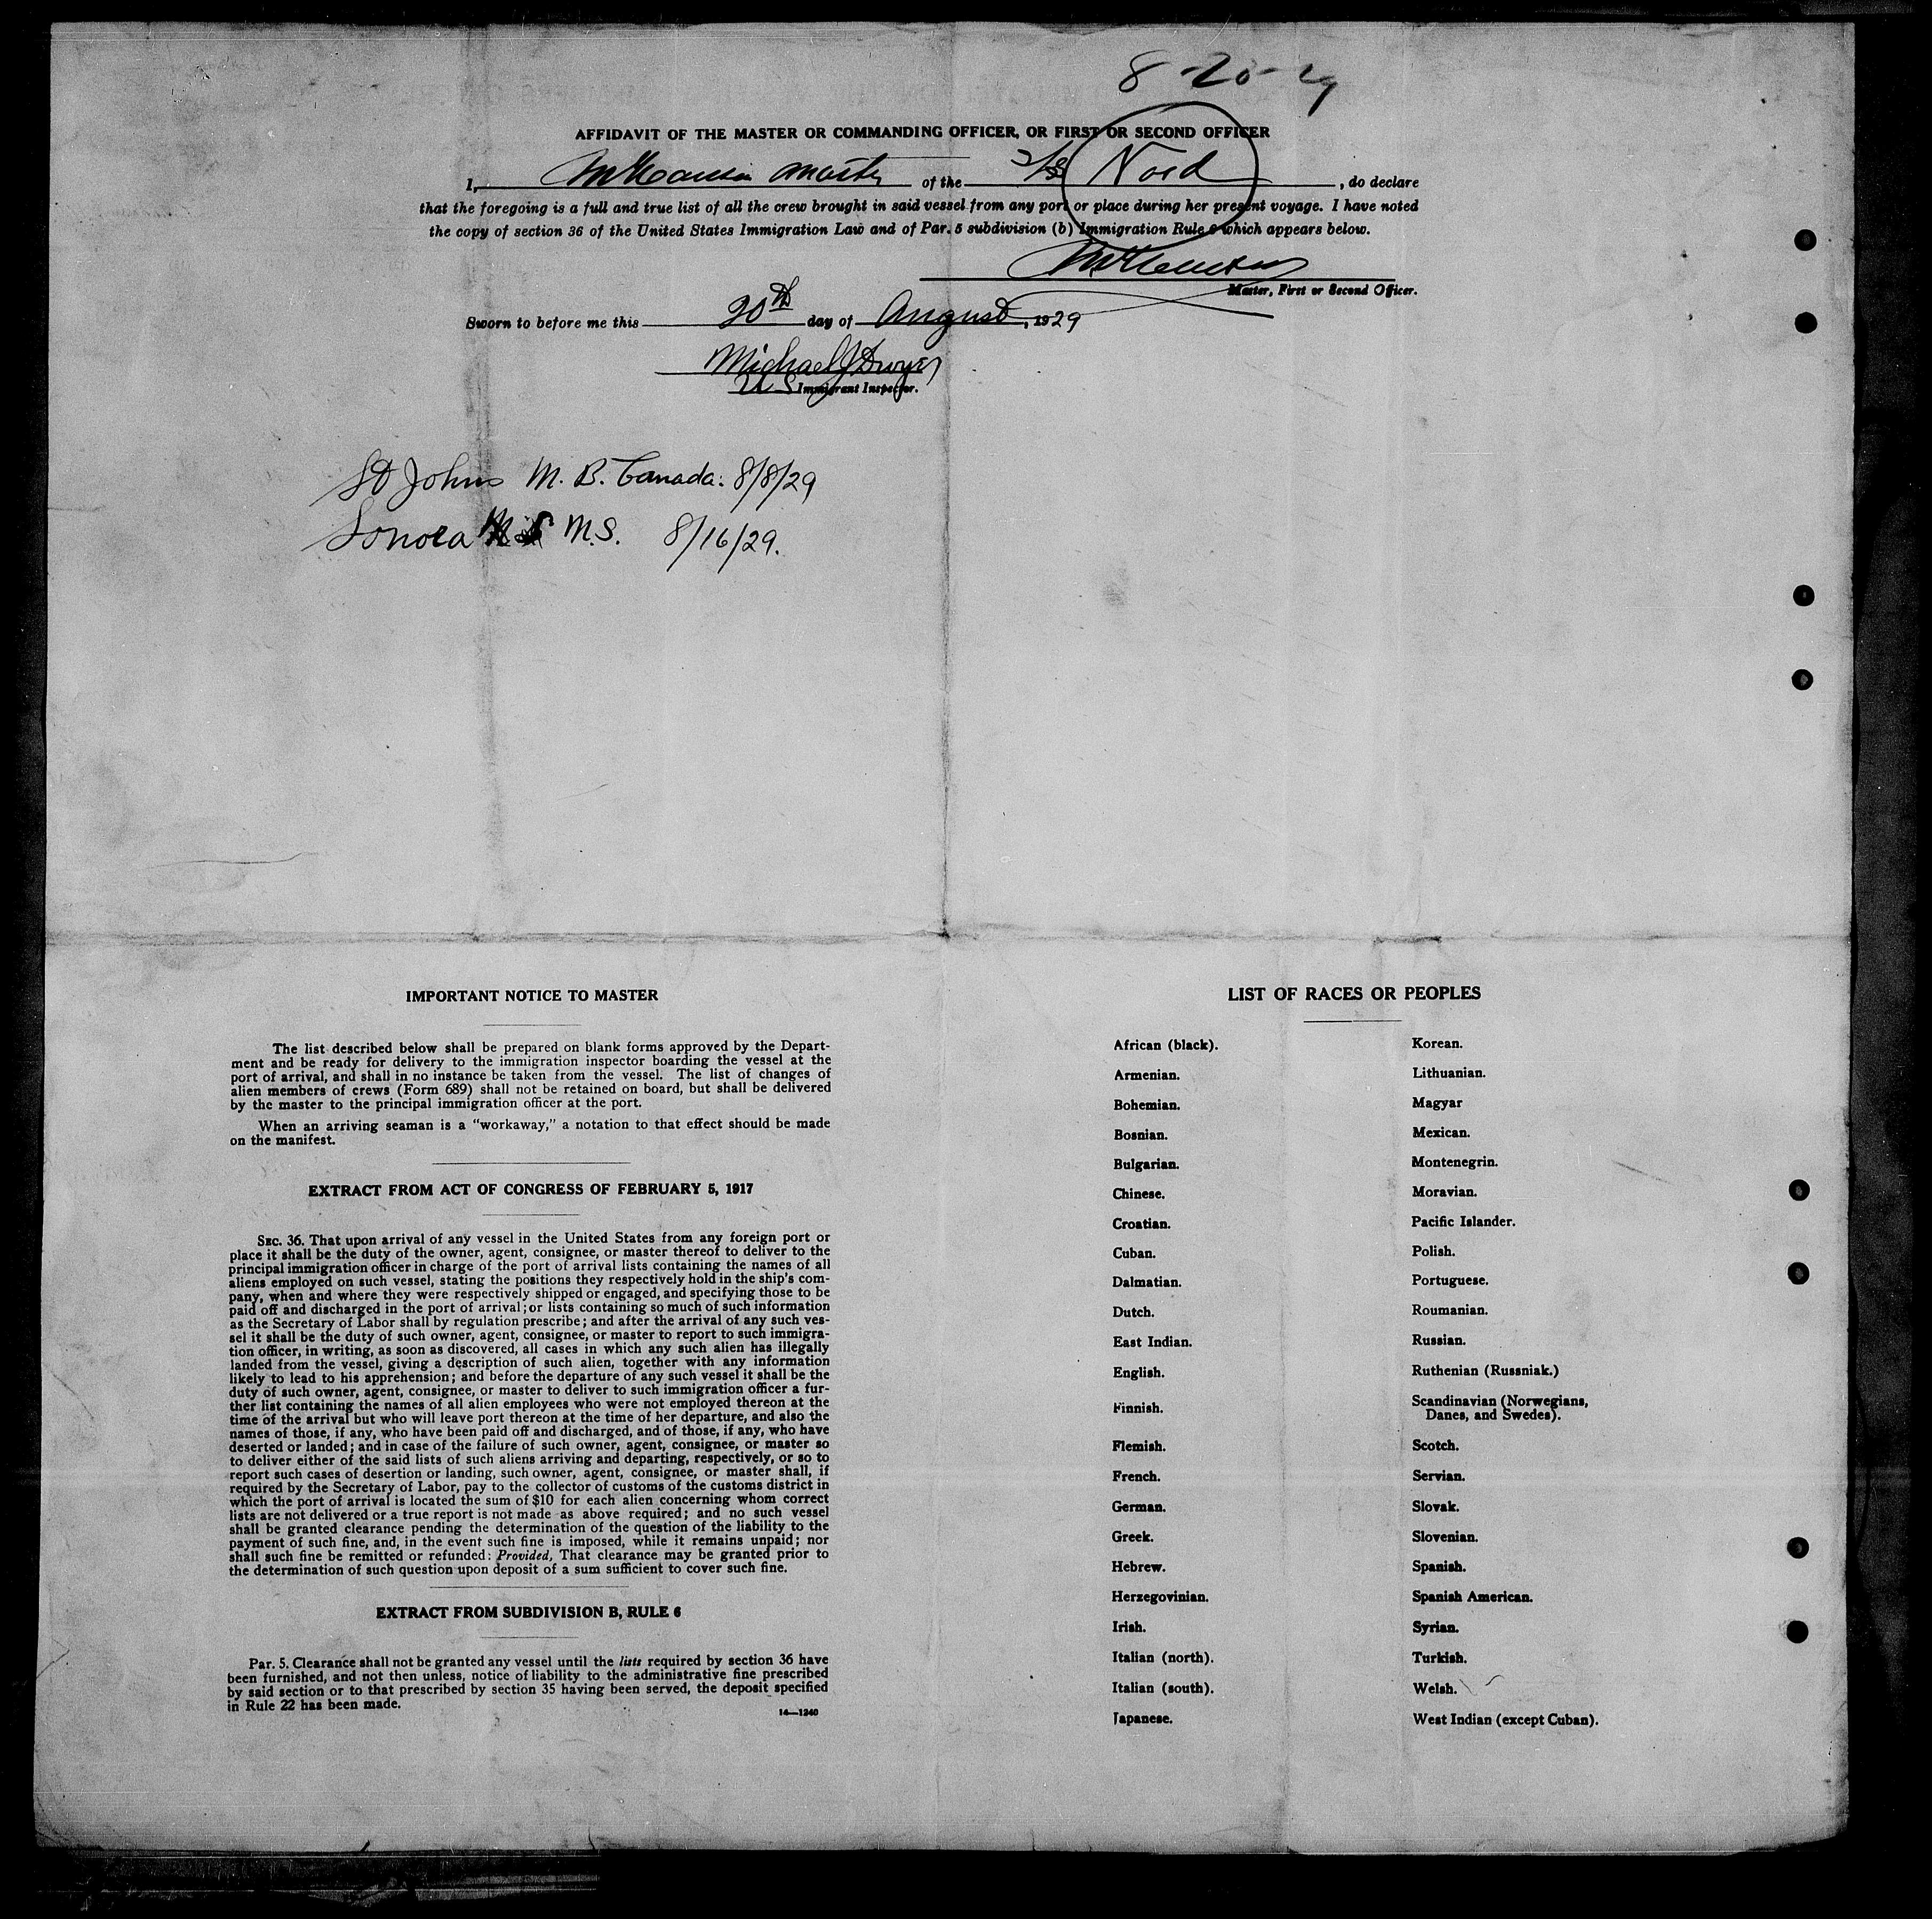 8-20-29
AFFIDAVIT OF THE MASTER OR COMMANDING OFFICER, OR FIRST OR SECOND OFFICER
I, master of the S/S Nord, do declare
that the foregoing is a full and true list of all the crew brought in said vessel from any port or place during her present voyage. I have noted
the copy of section 36 of the United States Immigration Law and of Par. 5 subdivision (b) Immigration Rule 6 which appears below.
Master, First or Second Officer.
Sworn to before me this 20th day of August, 1929
Michael J Dwyer
U S Immigrant Inspector.
St Johns M. B. Canada: 8/8/29
Sonora M.S. 8/16/29.
IMPORTANT NOTICE TO MASTER
The list described below shall be prepared on blank forms approved by the Depart-
ment and be ready for delivery to the immigration inspector boarding the vessel at the
port of arrival, and shall in no instance be taken from the vessel. The list of changes of
alien members of crews (Form 689) shall not be retained on board, but shall be delivered
by the master to the principal immigration officer at the port.
When an arriving seaman is a "workaway," a notation to that effect should be made
on the manifest.
EXTRACT FROM ACT OF CONGRESS OF FEBRUARY 5, 1917
SEC. 36. That upon arrival of any vessel in the United States from any foreign port or
place it shall be the duty of the owner, agent, consignee, or master thereof to deliver to the
principal immigration officer in charge of the port of arrival lists containing the names of all
aliens employed on such vessel, stating the positions they respectively hold in the ship's com-
pany, when and where they were respectively shipped or engaged, and specifying those to be
paid off and discharged in the port of arrival; or lists containing so much of such information
as the Secretary of Labor shall by regulation prescribe; and after the arrival of any such ves-
sel it shall be the duty of such owner, agent, consignee, or master to report to such immigra-
tion officer, in writing, as soon as discovered, all cases in which any such alien has illegally
landed from the vessel, giving a description of such alien, together with any information
likely to lead to his apprehension; and before the departure of any such vessel it shall be the
duty of such owner, agent, consignee, or master to deliver to such immigration officer a fur-
ther list containing the names of all alien employees who were not employed thereon at the
time of the arrival but who will leave port thereon at the time of her departure, and also the
names of those, if any, who have been paid off and discharged, and of those, if any, who have
deserted or landed; and in case of the failure of such owner, agent, consignee, or master so
to deliver either of the said lists of such aliens arriving and departing, respectively, or so to
report such cases of desertion or landing, such owner, agent, consignee, or master shall, if
required by the Secretary of Labor, pay to the collector of customs of the customs district in
which the port of arrival is located the sum of $10 for each alien concerning whom correct
lists are not delivered or a true report is not made as above required; and no such vessel
shall be granted clearance pending the determination of the question of the liability to the
payment of such fine, and, in the event such fine is imposed, while it remains unpaid; nor
shall such fine be remitted or refunded: Provided, That clearance may be granted prior to
the determination of such question upon deposit of a sum sufficient to cover such fine.
EXTRACT FROM SUBDIVISION B, RULE 6
Par. 5. Clearance shall not be granted any vessel until the lists required by section 36 have
been furnished, and not then unless, notice of liability to the administrative fine prescribed
by said section or to that prescribed by section 35 having been served, the deposit specified
in Rule 22 has been made.
14—1240
LIST OF RACES OR PEOPLES
African (black).
Armenian.
Bohemian.
Bosnian.
Bulgarian.
Chinese.
Croatian.
Cuban.
Dalmatian.
Dutch.
East Indian.
English.
Finnish.
Flemish.
French.
German.
Greek.
Hebrew.
Herzegovinian.
Irish.
Italian (north).
Italian (south).
Japanese.
Korean.
Lithuanian.
Magyar
Mexican.
Montenegrin.
Moravian.
Pacific Islander.
Polish.
Portuguese.
Roumanian.
Russian.
Ruthenian (Russniak.)
Scandinavian (Norwegians,
Danes, and Swedes).
Scotch.
Servian.
Slovak.
Slovenian.
Spanish.
Spanish American.
Syrian.
Turkish.
Welsh.
West Indian (except Cuban).